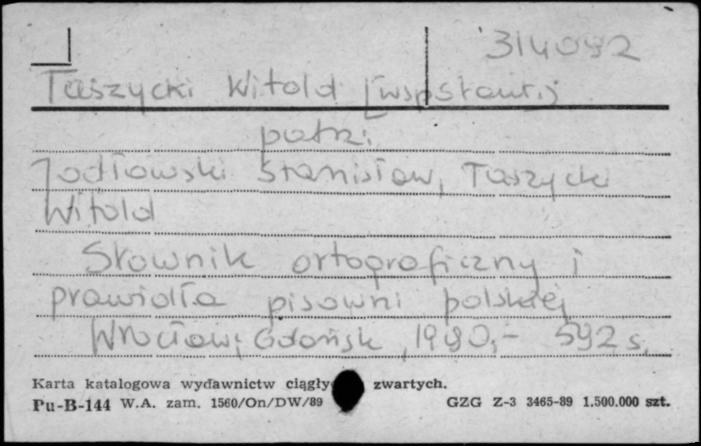 314092
Taszycki Witold [wspólautor]
patrz:
Jodłowski Stanisław, Taszycki
Witold
Słownik ortograficzny i
prawidła pisowni polskiej
Wrocław, Gdańsk, 1980,- 592 s.
Karta katalogowa wydawnictw ciągły zwartych.
Pu-B-144 W.A. zam. 1560/On/DW/89 GZG Z-3 3465-89 1.500.000 szt.